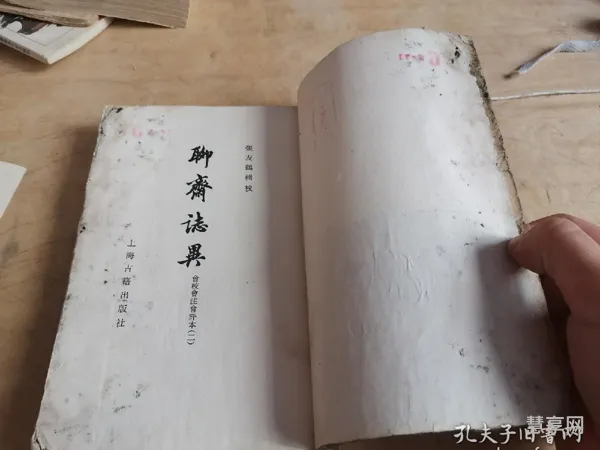 張友鶴輯校
聊齋誌異
會校會注會評本(二)
上海古籍出版社
孔夫子旧书网
慧享网